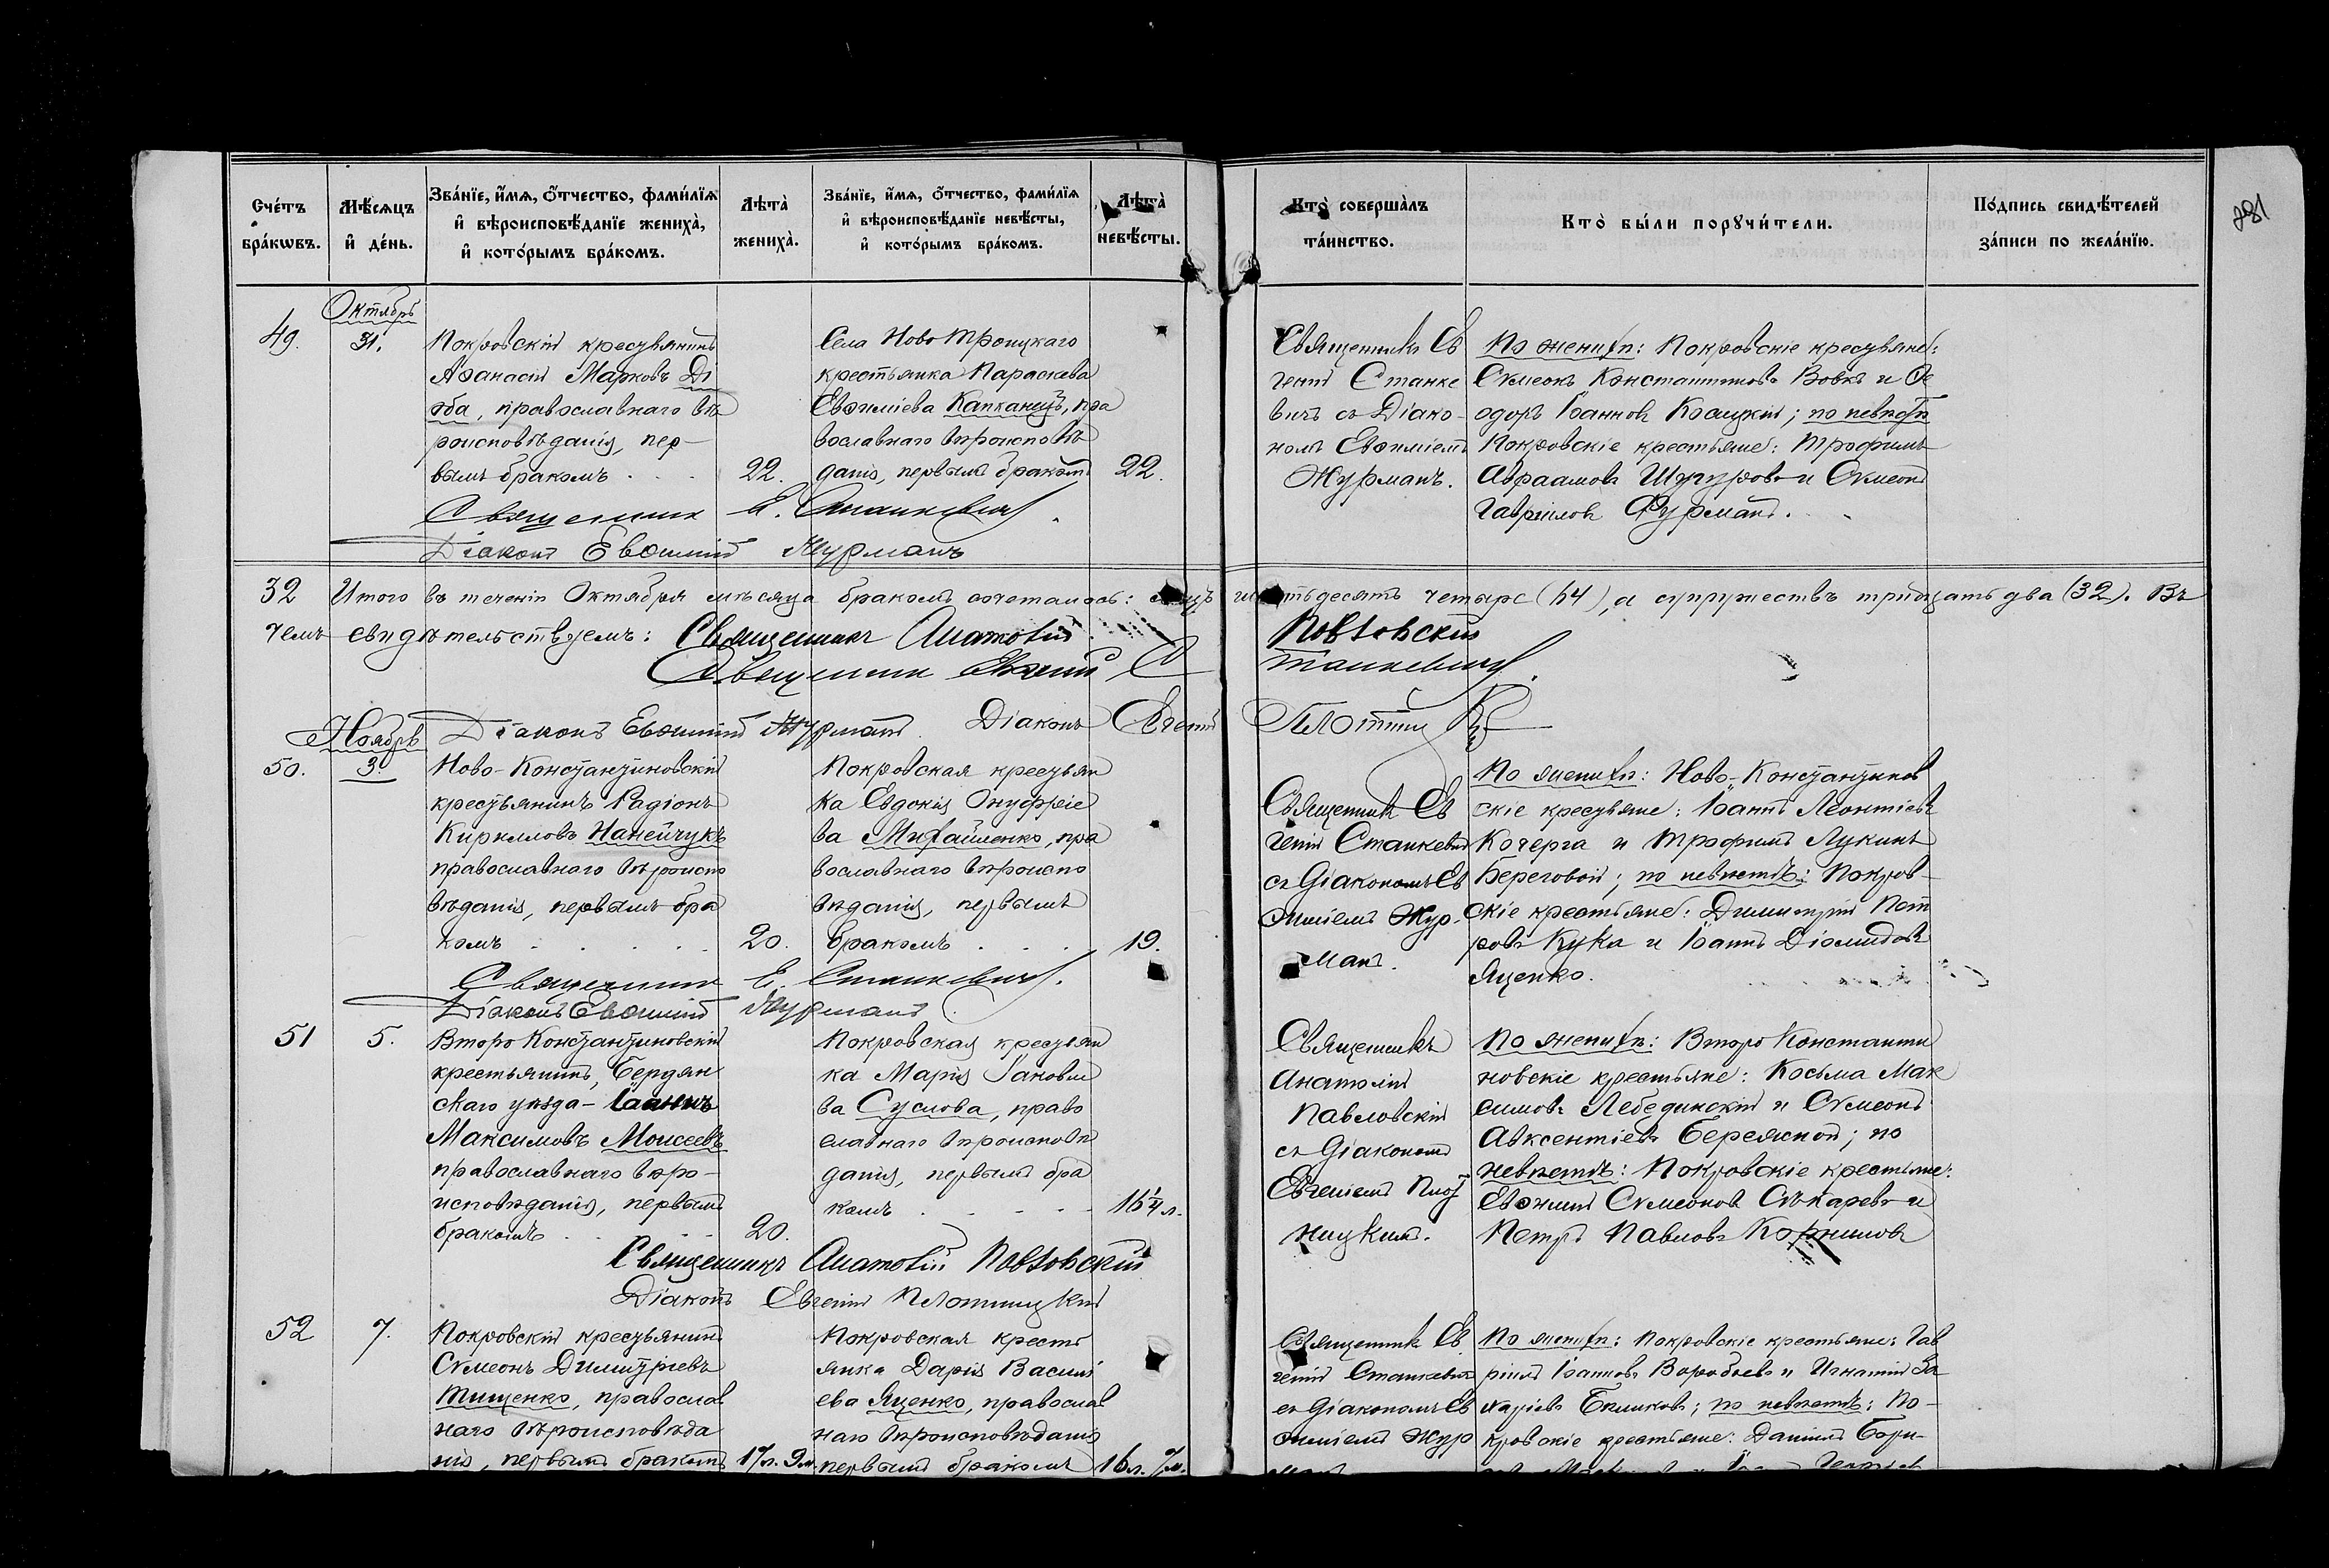 281
Счетъ браковъ.
Мѣсяцъ и день.
Званіе, имя, отчество, фамилія и вѣроисповѣданіе жениха, и которымъ бракомъ.
Лѣта жениха.
Званіе, имя, отчество, фамилія и вѣроисповѣданіе невѣсты, и которымъ бракомъ.
Лѣта невѣсты.
Кто совершалъ таинство.
Кто были поручители.
Подпись свидѣтелей записи по желанію.
Октябрь
49.
31.
Покровскій крестьянинъ
Аѳанасій Марковъ Ді
, православнаго вѣ
роисповѣданія, пер-
вымъ бракомъ . . .
22.
Села Ново Троицкаго
крестьянка Параскева
Евѳиміева Капканецъ, пра
вославнаго вѣроисповѣ
данія, первымъ бракомъ
22.
Священникъ Ев
геній Станке
вичъ съ Діако-
номъ Евѳиміемъ
Журманъ.
По женихѣ: Покровскіе крестьяне:
Сѵмеонъ Константиновъ Вовкъ и Ѳе
одоръ Іоанновъ Косицкій; по невѣстѣ
Покровскіе крестьяне: Трофимъ
Авраамовъ и Сѵмеонъ
Гавріиловъ Фурманъ.
Священникъ Е. Станкевичъ.
Діаконъ Евѳимій Журманъ
32 Итого въ теченіи Октября мѣсяца бракомъ сочеталось: лицъ шестьдесятъ четыре (64), а супружествъ тридцать два (32). Въ
чемъ свидѣтельствуемъ: Священникъ Анатолій Павловскій
Священникъ Евгеній Станкевичъ.
Діаконъ Евѳимій Журманъ. Діаконъ Евгеній Плотниц
Ноябрь
50.
3.
Ново-Константиновскій
крестьянинъ Радіонъ
Кирилловъ Нанейчукъ
православнаго вѣроиспо
вѣданія, первымъ бра
комъ . . . . .
20.
Покровская крестьян
ка Евдокія Онуфріе
ва Михайленко, пра
вославнаго вѣроиспо
вѣданія, первымъ
бракомъ . . .
19.
Священникъ Ев
геній Станкевичъ
съ Діакономъ Ев
ѳиміемъ Жур-
манъ.
По женихѣ: Ново-Константинов
скіе крестьяне: Іоаннъ Леонтіевъ
Кочерга и Трофимъ Лукинъ
Береговой; по невѣстѣ: Покров-
скіе крестьяне: Димитрій Пет
ровъ Кука и Іоаннъ Діомидовъ
Яценко.
Священникъ Е. Станкевичъ.
Діаконъ Евѳимій Журманъ.
51
5.
Второ Константиновскій
крестьянинъ, Бердян
скаго уѣзда - Іоаннъ
Максимовъ Моисеевъ
православнаго вѣро-
исповѣданія, первымъ
бракомъ . . .
20.
Покровская крестьян
ка Марія Іаковле
ва Суслова, право
славнаго вѣроисповѣ
данія, первымъ бра
комъ . . . . .
16 1/4 л.
Священникъ
Анатолій
Павловскій
съ Діакономъ
Евгеніемъ Плот
ницкимъ.
По женихѣ: Второ Константи
новскіе крестьяне: Косьма Мак
симовъ Лебединскій и Сѵмеонъ
Авксентіевъ Бережной; по
невѣстѣ: Покровскіе крестьяне:
Евѳимій Сѵмеоновъ и
Петръ Павловъ Корниловъ
Священникъ Анатолій Павловскій
Діаконъ Евгеній Плотницкій
52
7.
Покровскій крестьянинъ
Сѵмеонъ Димитріевъ
Тищенко, православ
наго вѣроисповѣда
нія, первымъ бракомъ
17 л. 9 м.
Покровская кресть
янка Дарія Василі
ева Яценко, православ
наго вѣроисповѣданія
первымъ бракомъ
16 л. 7 м.
Священникъ Ев
геній Станкевичъ
съ Діакономъ Ев
ѳиміемъ Жур
По женихѣ: Покровскіе крестьяне: Гав
ріилъ Іоанновъ Воробьевъ и Игнатій За
харіевъ Бѣликовъ; по невѣстѣ: По-
кровскіе крестьяне: Даніилъ Бори-